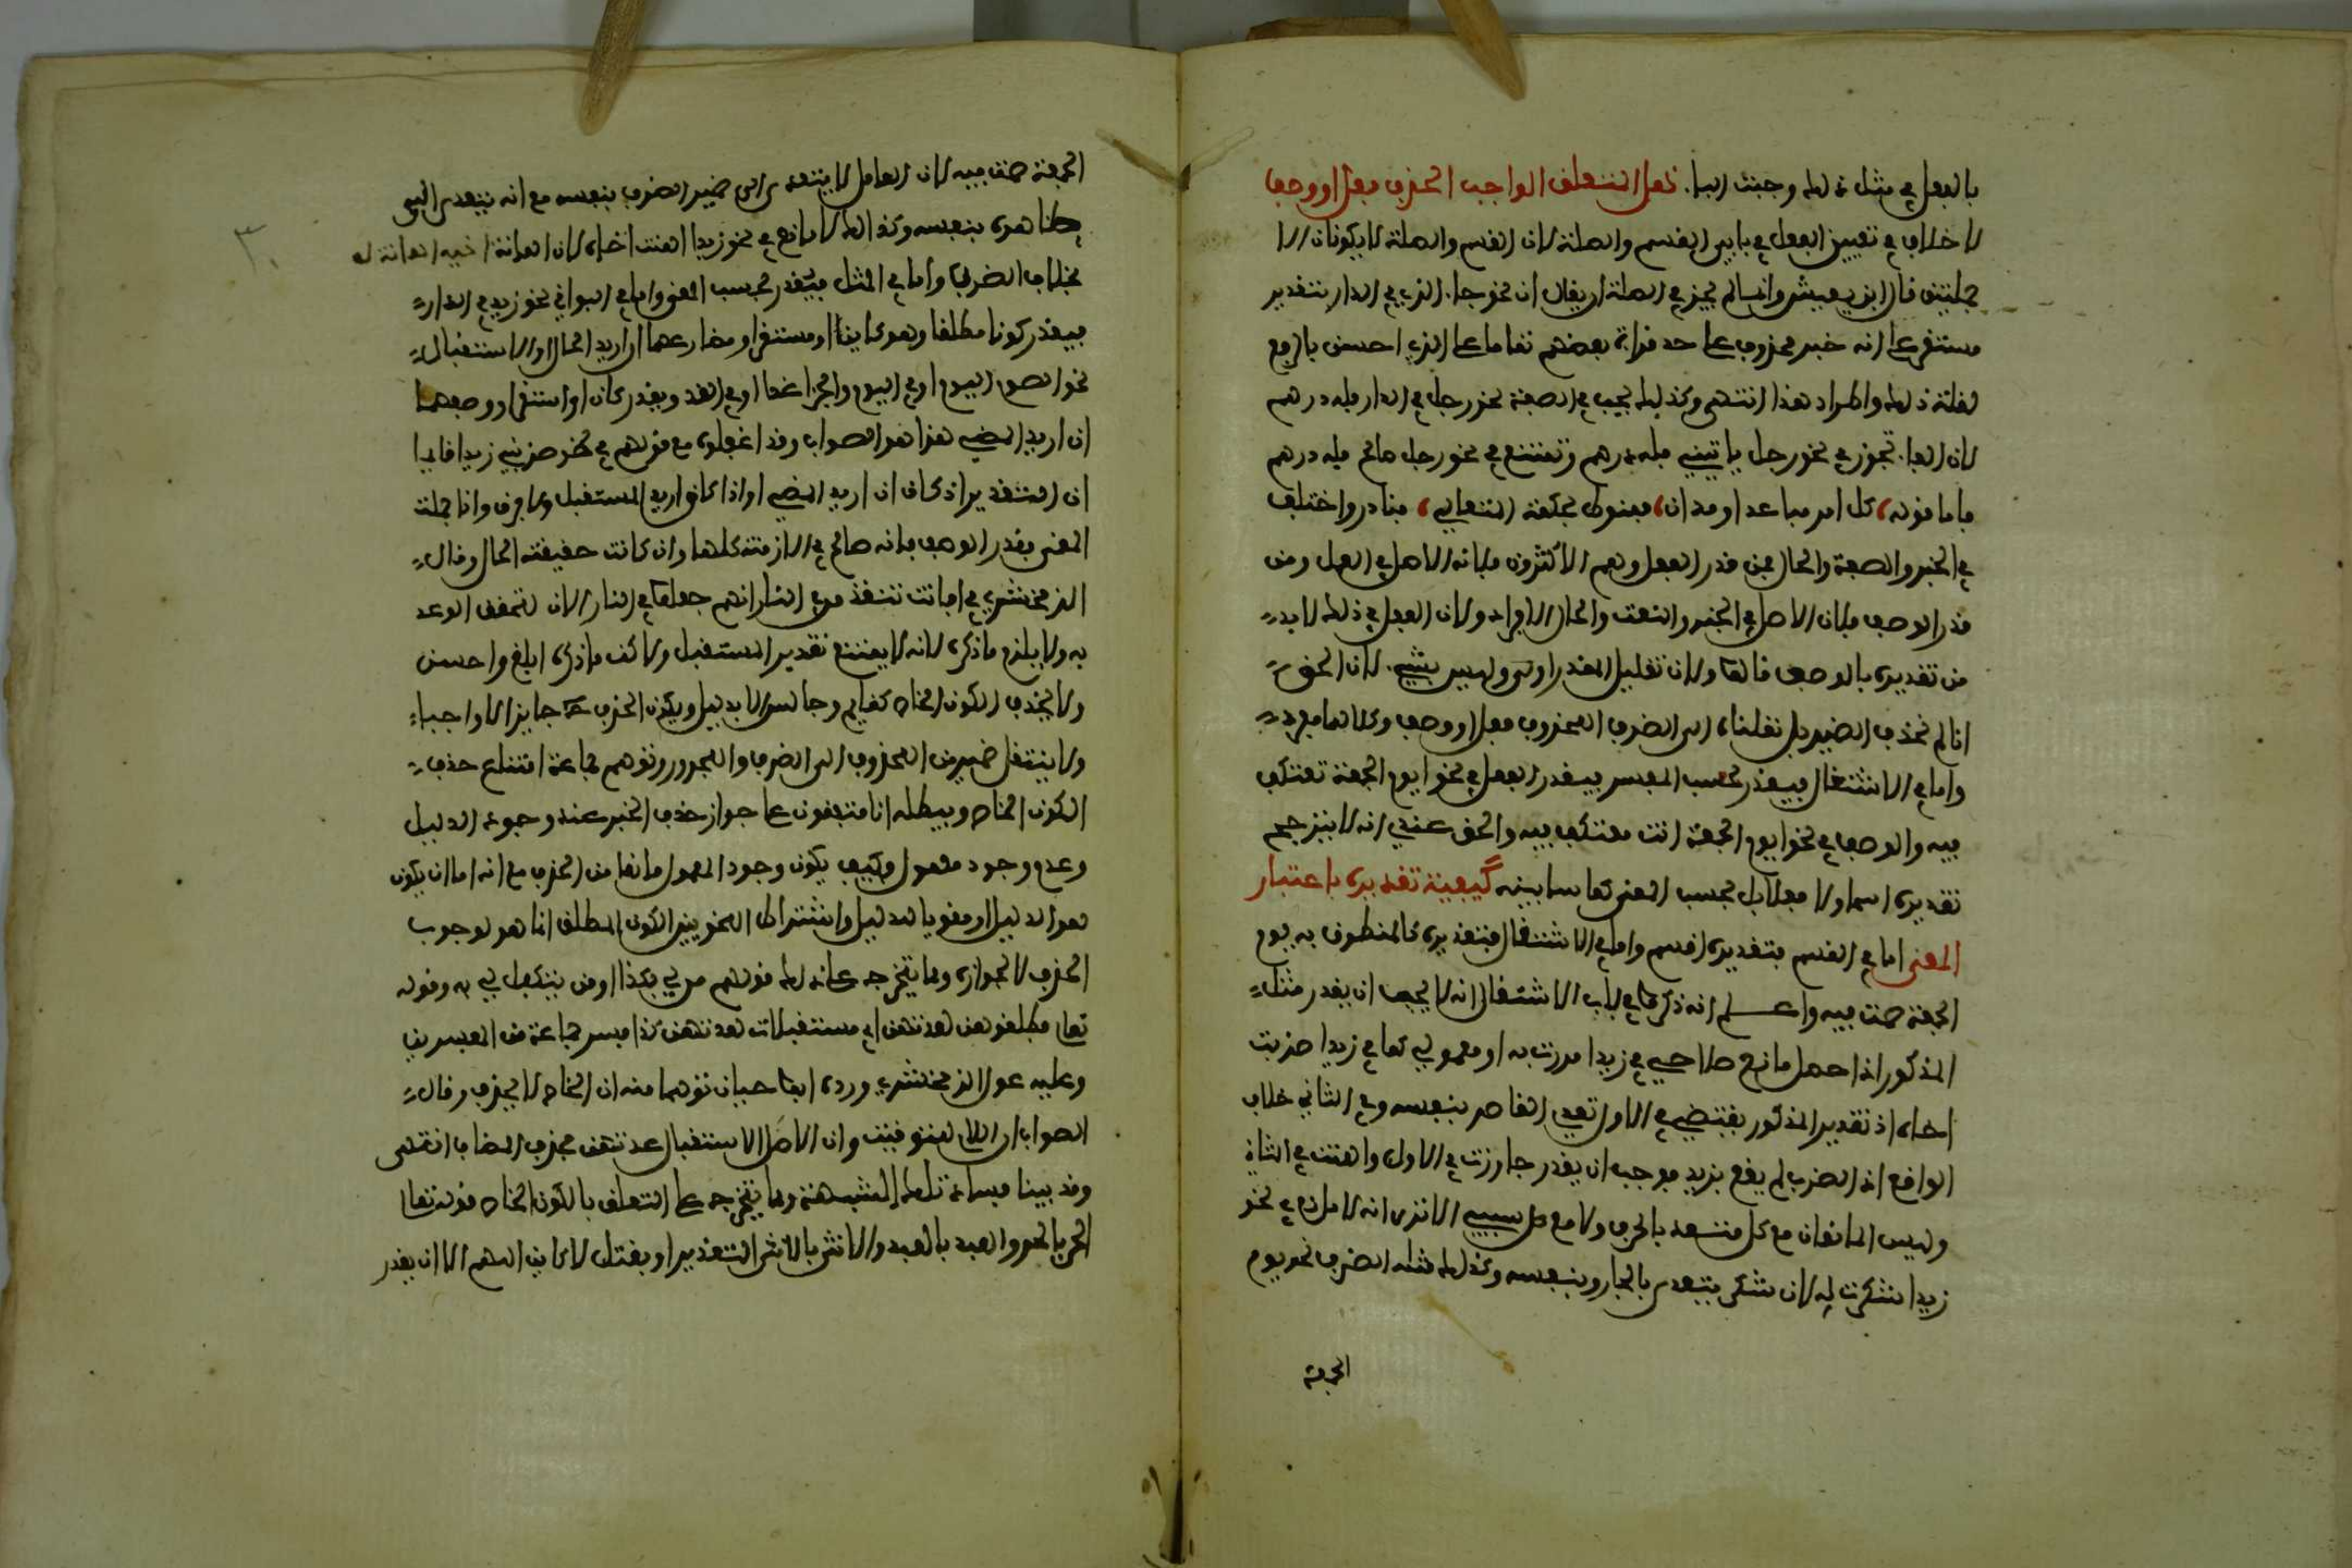 بالفعل في مثل ذلك وجبت الفاء. هل المتعلق الواجب الحذف فعل او وصف
لا خلاف في تعيين الفعل في بابي القسم والصلة لان القسم والصلة لا يكونان الا
جملتين قال ابن يعيش وانما لم يجز في الصلة ان يقال ان نحو جاء الذي في الدار بتقدير
مستقر على انه خبر لمحذوف على حد قراءة بعضهم تماما على الذي احسن بالرفع
لقلة ذلك واطراد هذا انتهى وكذلك يجب في الصفة نحو رجل في الدار فله درهم
لان الفاء تجوز في نحو رجل ياتيني فله درهم وتمتنع في نحو رجل صالح فله درهم
فاما قوله كل امر مباعد او مدان فمنوط بحكمة المتعالي فنادر واختلف
في الخبر والصفة والحال فمن قدر الفعل وهم الاكثرون فلانه الاصل في العمل ومن
قدر الوصف فلان الاصل في الخبر والنعت والحال الافراد ولان الفعل في ذلك لا بد
من تقديره بالوصف قالوا ولان تقليل المقدر اولى وليس بشيء لان الحق
انا لم نحذف الضمير بل نقلناه الى الظرف المحذوف فعل او وصف وكلاهما مفرد
واما في الاشتغال فيقدر بحسب المفسر فيقدر الفعل في نحو ايوم الجمعة تعتكف
فيه والوصف في نحو ايوم الجمعة انت معتكف فيه والحق عندي انه لا يترجح
تقديره اسما ولا فعلا بل بحسب المعنى كما سابينه كيفية تقديره باعتبار
المعنى اما في القسم فتقديره اقسم واما في الاشتغال فتقديره كالمنطوق به يوم
الجمعة صمت فيه واعلم انه ذكروا في باب الاشتغال انه لا يجب ان يقدر مثل
المذكور اذا حصل مانع صناعي في زيدا مررت به او معنوي كما في زيدا ضربت
اخاه اذ تقدير المذكور يقتضي في الاول تعدي القاصر بنفسه وفي الثاني خلاف
الواقع اذ الضرب لم يقع بزيد فوجب ان يقدر جاوزت في الاول واهنت في الثاني
وليس المانعان مع كل متعد بالحرف ولا مع كل سببي الا ترى انه لا مانع في نحو
زيدا شكرت له لان شكر يتعدى بالجار وبنفسه وكذلك مثله الظرف نحو يوم
الجمعة
الجمعة صمت فيه لان العامل لا يتعدى الى ضمير الظرف بنفسه مع انه يتعدى الى
ظاهره بنفسه وكذلك لا مانع في نحو زيدا اهنت اخاه لان اهانة اخيه اهانة له
بخلاف الضرب واما في المثل فيقدر بحسب المعنى واما في البواقي نحو زيد في الدار
فيقدر كونا مطلقا وهو كاين او مستقر او مضارعهما ان اريد الحال او الاستقبال
نحو الصوم اليوم او في اليوم والجزاء غدا او في الغد ويقدر كان او استقر او وصفهما
ان اريد المضي هذا هو الصواب وقد اغفلوه مع قولهم في نحو ضربي زيدا قايما
ان التقدير اذ كان ان اريد المضي او اذا كان اريد المستقبل ولا فرق واذا جهلت
المعنى فقدر الوصف فانه صالح في الازمنة كلها وان كانت حقيقته الحال وقال
الزمخشري في افانت تنقذ من في النار انهم جعلوا في النار الان لتحقق الوعد
به ولا يلزم ما ذكره لانه لا يمتنع تقدير المستقبل ولاكن ما ذكره ابلغ واحسن
ولا يحذف الكون الخاص كقايم وجالس الا بدليل ويكون الحذف ح جايزا لا واجبا
ولا ينتقل ضمير من المحذوف الى الظرف والمجرور وتوهم جماعة امتناع حذف
الكون الخاص ويبطله انا متفقون على جواز حذف الخبر عند وجود الدليل
وعدم وجود معمول فكيف يكون وجود المعمول مانعا من الحذف مع انه اما ان يكون
هو الدليل او مقويا للدليل واشتراط النحويين الكون المطلق انما هو لوجوب
الحذف لا لجوازه ومما يتخرج على ذلك قولهم من لي بكذا اومن يتكفل لي به وقوله
تعالى فطلقوهن لعدتهن اي مستقبلات لعدتهن كذا فسر جماعة من المفسرين
وعليه عول الزمخشري ورده ابو حيان توهما منه ان الخاص لا يحذف وقال
الصواب ان اللام للتوقيت وان الاصل لاستقبال عدتهن فحذف المضاف انتهى
وقد بينا فساد تلك الشبهة ومما يتخرج على التعلق بالكون الخاص قوله تعالى
الحر بالحر والعبد بالعبد والانثى بالانثى التقدير او يقتل لا كاين اللهم الا ان يقدر